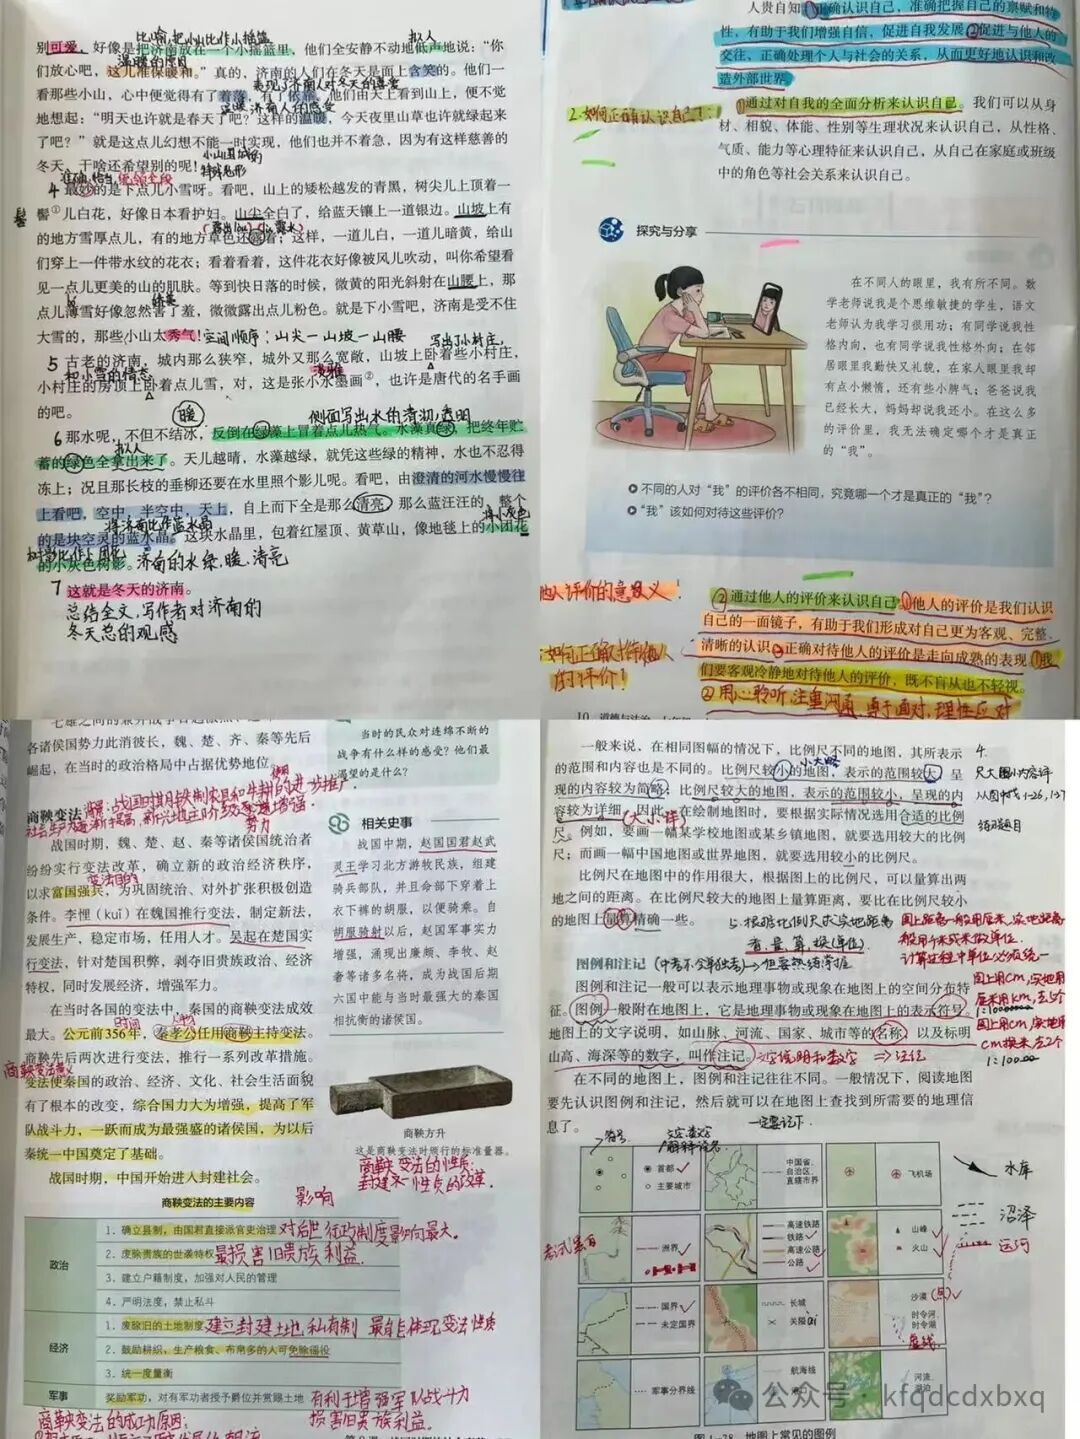 比喻,把小山比作小摇篮
拟人
别可爱,好像是把济南放在一个小摇篮里,他们全安静不动地低声地说:“你
温暖的原因
们放心吧,这儿准保暖和。”真的,济南的人们在冬天是面上含笑的。他们一
表现了济南人对冬天的喜爱
看那些小山,心中便觉得有了着落,有了依靠。他们由天上看到山上,便不觉
济南人的感受
地想起:“明天也许就是春天了吧?这样的温暖,今天夜里山草也许就绿起来
了吧?”就是这点儿幻想不能一时实现,他们也并不着急,因为有这样慈善的
冬天,干啥还希望别的呢!
4 最妙的是下点儿小雪呀。看吧,山上的矮松越发的青黑,树尖儿上顶着一
髻①儿白花,好像日本看护妇。山尖全白了,给蓝天镶上一道银边。山坡上有
髻
的地方雪厚点儿,有的地方草色还露着;这样,一道儿白,一道儿暗黄,给山
们穿上一件带水纹的花衣;看着看着,这件花衣好像被风儿吹动,叫你希望看
见一点儿更美的山的肌肤。等到快日落的时候,微黄的阳光斜射在山腰上,那
娇美
点儿薄雪好像忽然害了羞,微微露出点儿粉色。就是下小雪吧,济南是受不住
大雪的,那些小山太秀气!空间顺序:山尖—山坡—山腰
写出小村庄,
5 古老的济南,城内那么狭窄,城外又那么宽敞,山坡上卧着些小村庄,
和小雪的情态
小村庄的房顶上卧着点儿雪,对,这是张小水墨画②,也许是唐代的名手画
的吧。
暖
侧面写出水的清澈,透明
6 那水呢,不但不结冰,反倒在绿藻上冒着点儿热气。水藻真绿,把终年贮
拟人
蓄的绿色全拿出来了。天儿越晴,水藻越绿,就凭这些绿的精神,水也不忍得
冻上;况且那长枝的垂柳还要在水里照个影儿呢。看吧,由澄清的河水慢慢往
上看吧,空中,半空中,天上,自上而下全是那么清亮,那么蓝汪汪的,整个
将济南比作蓝水晶
的是块空灵的蓝水晶。这块水晶里,包着红屋顶、黄草山,像地毯上的小团花
的小灰色树影。济南的水绿,暖,清亮
7 这就是冬天的济南。
总结全文,写作者对济南的
冬天总的观感
人贵自知。正确认识自己,准确把握自己的禀赋和特
性,有助于我们增强自信,促进自我发展;②促进与他人的
交往,正确处理个人与社会的关系,从而更好地认识和改
造外部世界。
2.如何正确认识自己?:
①通过对自我的全面分析来认识自己。我们可以从身
材、相貌、体能、性别等生理状况来认识自己,从性格、
气质、能力等心理特征来认识自己,从自己在家庭或班级
中的角色等社会关系来认识自己。
探究与分享
在不同人的眼里,我有所不同。数
学老师说我是个思维敏捷的学生,语文
老师认为我学习很用功;有同学说我性
格内向,也有同学说我性格外向;在邻
居眼里我勤快又礼貌,在家人眼里我却
有点小懒惰,还有些小脾气;爸爸说我
已经长大,妈妈却说我还小。在这么多
的评价里,我无法确定哪个才是真正的
“我”。
不同的人对“我”的评价各不相同,究竟哪一个才是真正的“我”?
“我”该如何对待这些评价?
他人评价的意义
②通过他人的评价来认识自己。①他人的评价是我们认识
自己的一面镜子,有助于我们形成对自己更为客观、完整、
清晰的认识。正确对待他人的评价是走向成熟的表现。①我
如何正确对待他人
的评价!
们要客观冷静地对待他人的评价,既不盲从也不轻视。
②用心聆听,注重沟通,勇于面对,理性应对
各诸侯国势力此消彼长,魏、楚、齐、秦等先后
崛起,在当时的政治格局中占据优势地位。
当时的民众对连绵不断的
战争有什么样的感受?他们最
渴望的是什么?
商鞅变法
背景:战国时期铁制农具和牛耕的进一步推广,
使用
势力
战国时期,魏、楚、赵、秦等诸侯国统治者
纷纷实行变法改革,确立新的政治经济秩序,
变法目的
以求富国强兵,为巩固统治、对外扩张积极创造
条件。李悝(kuī)在魏国推行变法,制定新法,
发展生产,稳定市场,任用人才。吴起在楚国实
行变法,针对楚国积弊,剥夺旧贵族政治、经济
特权,同时发展经济,增强军力。
在当时各国的变法中,秦国的商鞅变法成效
时间
人物
最大。公元前356年,秦孝公任用商鞅主持变法。
商鞅先后两次进行变法,推行一系列改革措施。
商鞅变法意义
变法使秦国的政治、经济、文化、社会生活面貌
有了根本的改变,综合国力大为增强,提高了军
队战斗力,一跃而成为最强盛的诸侯国,为以后
秦统一中国奠定了基础。
战国时期,中国开始进入封建社会。
相关史事
战国中期,赵国国君赵武
灵王学习北方游牧民族,组建
骑兵部队,并且命部下穿着上
衣下裤的胡服,以便骑乘。自
胡服骑射以后,赵国军事实力
增强,涌现出廉颇、李牧、赵
奢等诸多名将,成为战国后期
六国中能与当时最强大的秦国
相抗衡的诸侯国。
商鞅方升
这是商鞅变法时颁行的标准量器。
商鞅变法的性质:
封建性质的改革.
商鞅变法的主要内容
影响
政治
1. 确立县制,由国君直接派官吏治理 对后世行政制度影响最大。
2. 废除贵族的世袭特权 最损害旧贵族利益.
3. 建立户籍制度,加强对人民的管理
4. 严明法度,禁止私斗
经济
1. 废除旧的土地制度 建立封建土地私有制 最能体现变法性质
2. 鼓励耕织,生产粮食、布帛多的人可免除徭役
3. 统一度量衡
军事
奖励军功,对有军功者授予爵位并赏赐土地 有利于增强军队战斗力
损害旧贵族利益。
商鞅变法的成功原因:
一般来说,在相同图幅的情况下,比例尺不同的地图,其所表示
小大略
的范围和内容也是不同的。比例尺较小的地图,表示的范围较大,呈
现的内容较为简略;比例尺较大的地图,表示的范围较小,呈现的内
容较为详细,因此,在绘制地图时,要根据实际情况选用合适的比例
(大小详)
尺。例如,要画一幅某学校地图或某乡镇地图,就要选用较大的比例
尺;而画一幅中国地图或世界地图,就要选用较小的比例尺。
比例尺在地图中的作用很大,根据图上的比例尺,可以量算出两
地之间的距离。在比例尺较大的地图上量算距离,要比在比例尺较小
的地图上量算精确一些。
4.
尺大图小内容详
5.根据比例尺求实地距离
查、量、算、换(单位).
图上距离一般用厘米,实地距离
般用千米或米做单位.
计算过程中单位必须统一
图例和注记
图例和注记一般可以表示地理事物或现象在地图上的空间分布特
征。图例一般附在地图上,它是地理事物或现象在地图上的表示符号。
地图上的文字说明,如山脉、河流、国家、城市等的名称,以及标明
山高、海深等的数字,叫作注记。文字说明和数字 ⇒ 注记
在不同的地图上,图例和注记往往不同。一般情况下,阅读地图
要先认识图例和注记,然后就可以在地图上查找到所需要的地理信
息了。
一定要记下.
符号
首都
主要城市
中国省、
自治区、
直辖市界
飞机场
水库
沼泽
运河
洲界
高速铁路
铁路
高速公路
公路
山峰
火山
国界
未定国界
长城
关隘
ài
沙漠
时令河、
时令湖
虚线
军事分界线
航海线
河流、
湖泊
图1-28 地图上常见的图例
公众号·kfqdcdxbxq